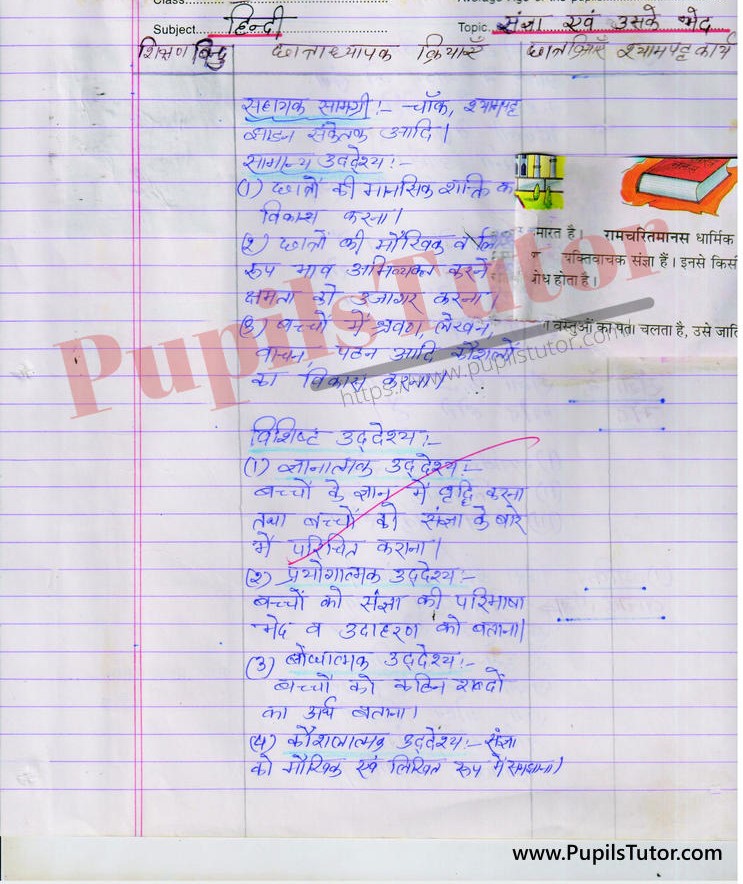 Class
Subject हिन्दी
Topic. संज्ञा एवं उसके भेद
शिक्षण बिन्दु छात्राध्यापक क्रियाएँ छात्र क्रियाएँ श्यामपट्ट कार्य
सहायक सामग्री :- चॉक, श्यामपट्ट
झाडन संकेतक आदि।
सामान्य उद्देश्य :-
(1) छात्रों की मानसिक शक्ति क
विकास करना।
(2) छात्रों की मौखिक व लि
रूप भाव अभिव्यक्त करने
क्षमता को उजागर करना।
(3) बच्चों में श्रवण, लेखन,
वाचन पठन आदि कौशलों
का विकास करना।
मारत है। रामचरितमानस धार्मिक
यक्तिवाचक संज्ञा हैं। इनसे किसी
बोध होता है।
वस्तुओं का पता चलता है, उसे जाति
PupilsTutor
https://www.pupilstutor.com
विशिष्ट उद्देश्य :-
(1) ज्ञानात्मक उद्देश्य :-
बच्चों के ज्ञान में वृद्धि करना
तथा बच्चों को संज्ञा के बारे
में परिचित कराना।
(2) प्रयोगात्मक उद्देश्य :-
बच्चों को संज्ञा की परिभाषा
भेद व उदाहरण को बताना।
(3) बोधात्मक उद्देश्य :-
बच्चों को कठिन शब्दों
का अर्थ बताना।
(4) कौशलात्मक उद्देश्य :- संज्ञा
को मौखिक एवं लिखित रूप में समझाना।
www.PupilsTutor.com